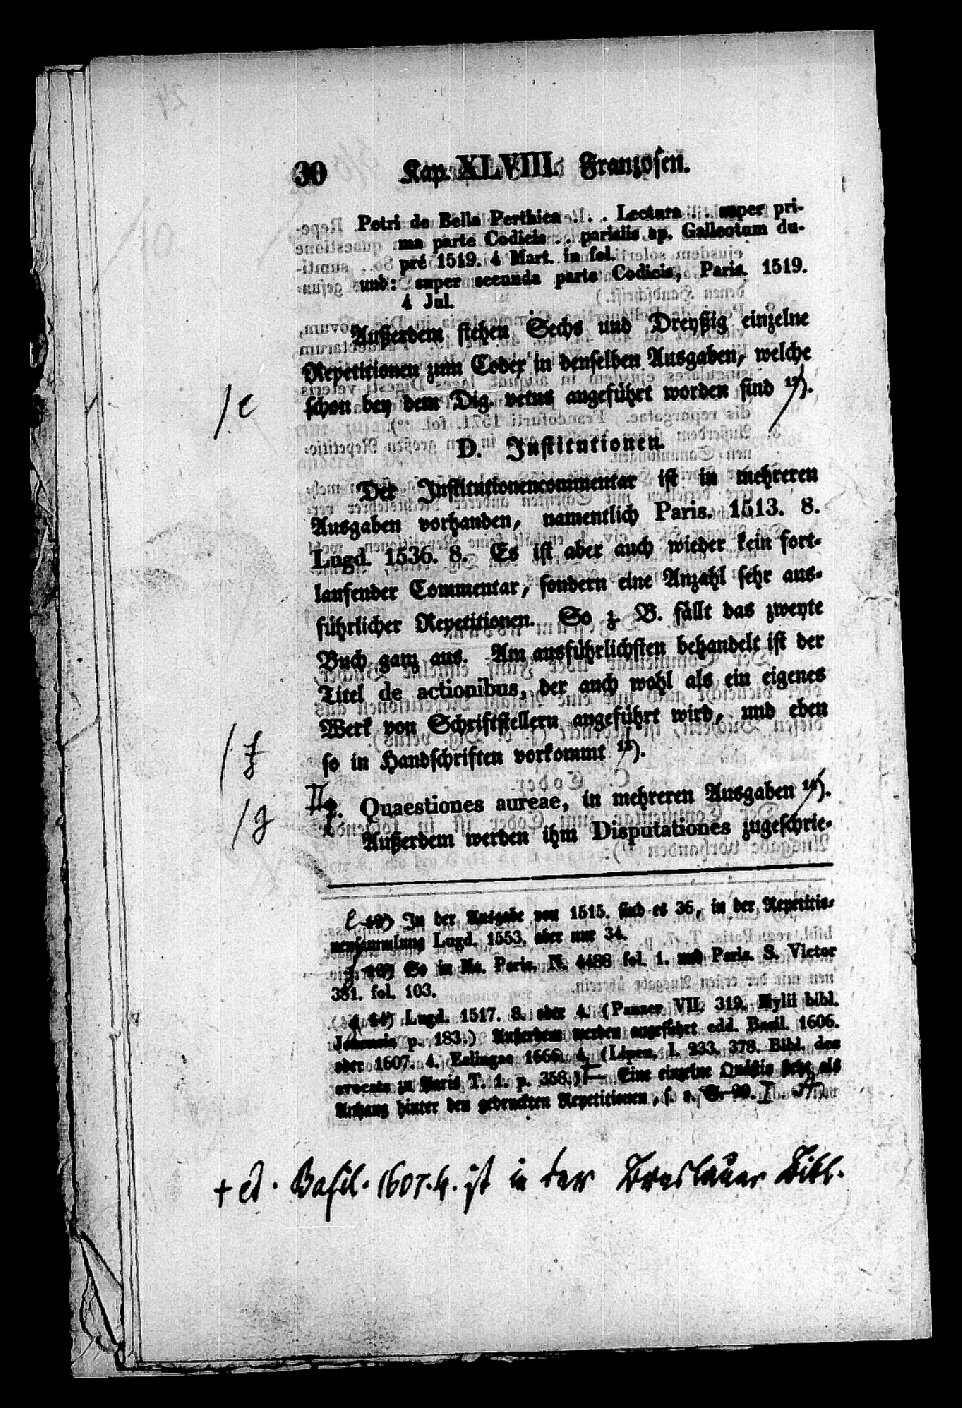 30 Kap. XLVIII. Franzosen.
Petri de Bella Perthica . . Lectura . . super pri-
ma parte Codicis . . parisiis ap. Galleotum du-
pré 1519. 4 Mart. in fol.
und: super secunda parte Codicis, Paris. 1519.
4 Jul.
Außerdem stehen Sechs und Dreyßig einzelne
Repetitionen zum Codex in denselben Ausgaben, welche
/ c schon bey dem Dig. vetus angeführt worden sind ¹²).
D. Institutionen.
Der Institutionencommentar ist in mehreren
Ausgaben vorhanden, namentlich Paris. 1513. 8.
Lugd. 1536. 8. Es ist aber auch wieder kein fort-
laufender Commentar, sondern eine Anzahl sehr aus-
führlicher Repetitionen. So z. B. fällt das zweyte
Buch ganz aus. Am ausführlichsten behandelt ist der
Titel de actionibus, der auch wohl als ein eigenes
Werk von Schriftstellern angeführt wird, und eben
/ f so in Handschriften vorkommt ¹³).
/ g II. Quaestiones aureae, in mehreren Ausgaben ¹⁴).
Außerdem werden ihm Disputationes zugeschrie-
In der Ausgabe von 1515. sind es 36, in der Repetitio-
nensammlung Lugd. 1553. aber nur 34.
So in Ms. Paris. N. 4488 fol. 1. und Paris. S. Victor
381. fol. 103.
Lugd. 1517. 8. oder 4. (Panzer VII. 319. Mylii bibl.
Jenensis p. 183.) Außerdem werden angeführt edd. Basil. 1606.
oder 1607. 4. Eslingae 1666. 4. (Lipen. I. 233. 378. Bibl. des
avocats zu Paris T. 1. p. 358.) Eine einzelne Quästio steht als
Anhang hinter den gedruckten Repetitionen, s. o. S. 29.
+ ed. Basil. 1607. 4. ist in der Breslauer Bibl.